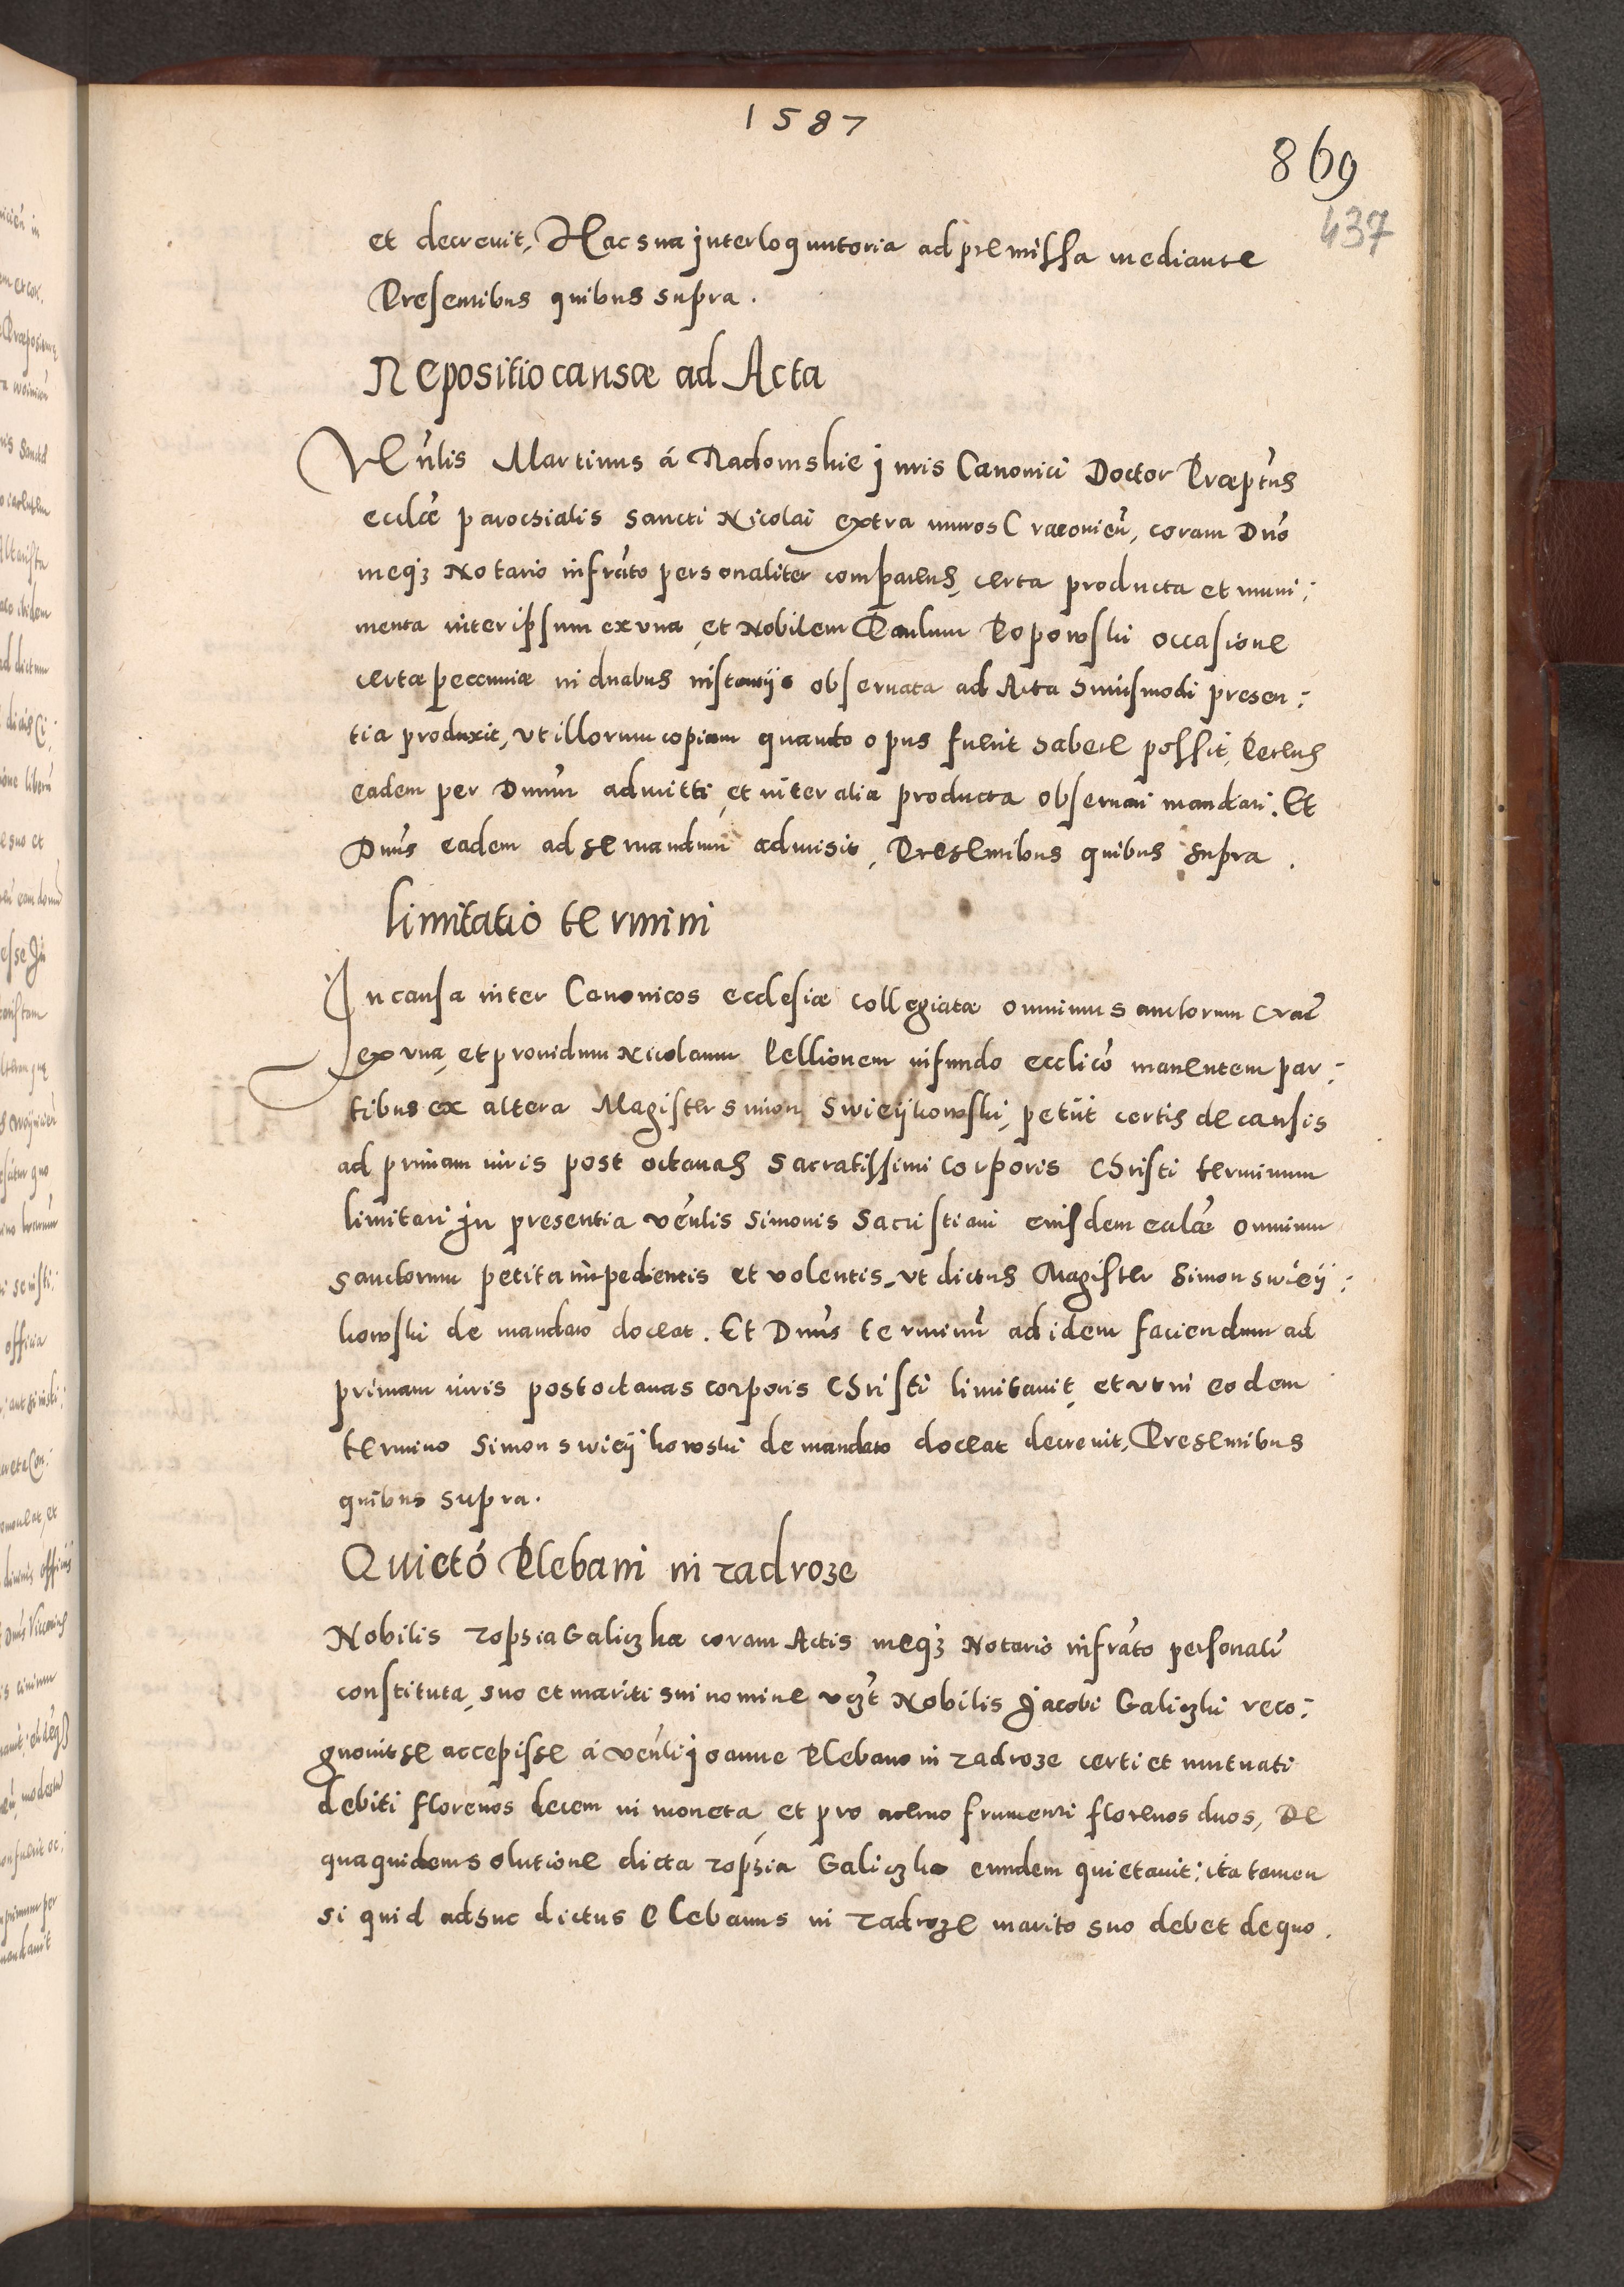 1587
869
437
et decreuit, Hac sua jnterloquutoria ad premissa mediante
Presentibus quibus supra.
Repositio causæ ad Acta
Venlis Martinus á Radomskie juris Canonici Doctor Præptus
ecclæ parochialis sancti Nicolai extra muros Cracouien, coram Dno
meqȝ Notario infrato personaliter comparens, certa producta et muni:
menta inter ipsum ex vna, et Nobilem Paulum Popowski occasione
certæ peccuniæ in duabus instantijs obseruata ad Acta huiusmodi presen:
tia produxit, vt illorum copiam quando opus fuerit habere possit, Petens
eadem per Dnum admitti, et inter alia producta obseruari mandari. Et
Dnus eadem adseruandum admisit, Presentibus quibus supra.
limitatio termini
In causa inter Canonicos ecclesiæ collegiatæ omnium sanctorum Crac
ex vna, et prouidum Nicolaum Pellionem in fundo ecclico manentem par:
tibus ex altera Magister Simon Swieijkowski, petijt certis de causis
ad primam iuris post octauas sacratissimi Corporis Christi terminum
limitari jn presentia venlis Simonis Sacristiani eiusdem ecclæ omnium
sanctorum petita impedientis et volentis, vt dictus Magister Simon swieij:
kowski de mandato doceat. Et Dnus terminum ad idem faciendum ad
primam iuris post octauas corporis Christi limitauit, et vt in eodem
termino Simon swieijkowski de mandato doceat decreuit, Presentibus
quibus supra.
Quietó Plebani in zadroze
Nobilis zophia Galiczka coram Actis meqȝ Notario infrato personali
constituta, suo et mariti sui nomine vczt Nobilis Jacobi Galiczki reco:
gnouit se accepisse á venli joanne Plebano in zadroze certi et mutuati
debiti florenos decem in moneta, et pro aceruo frumenti florenos duos, De
qua quidem solutione dicta zophia Galiczka eundem quietauit: ita tamen
si quid adhuc dictus Plebanus in zadroze marito suo debet de quo.